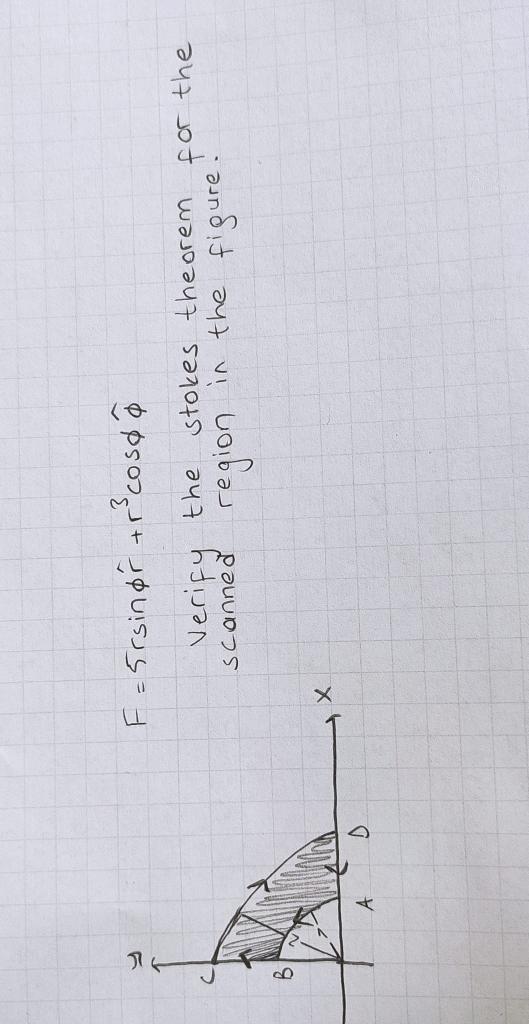 F = 5rsinφr̂ + r³cosφ φ̂
Verify the stokes theorem for the
scanned region in the figure.
y
C
B
2
A
D
x